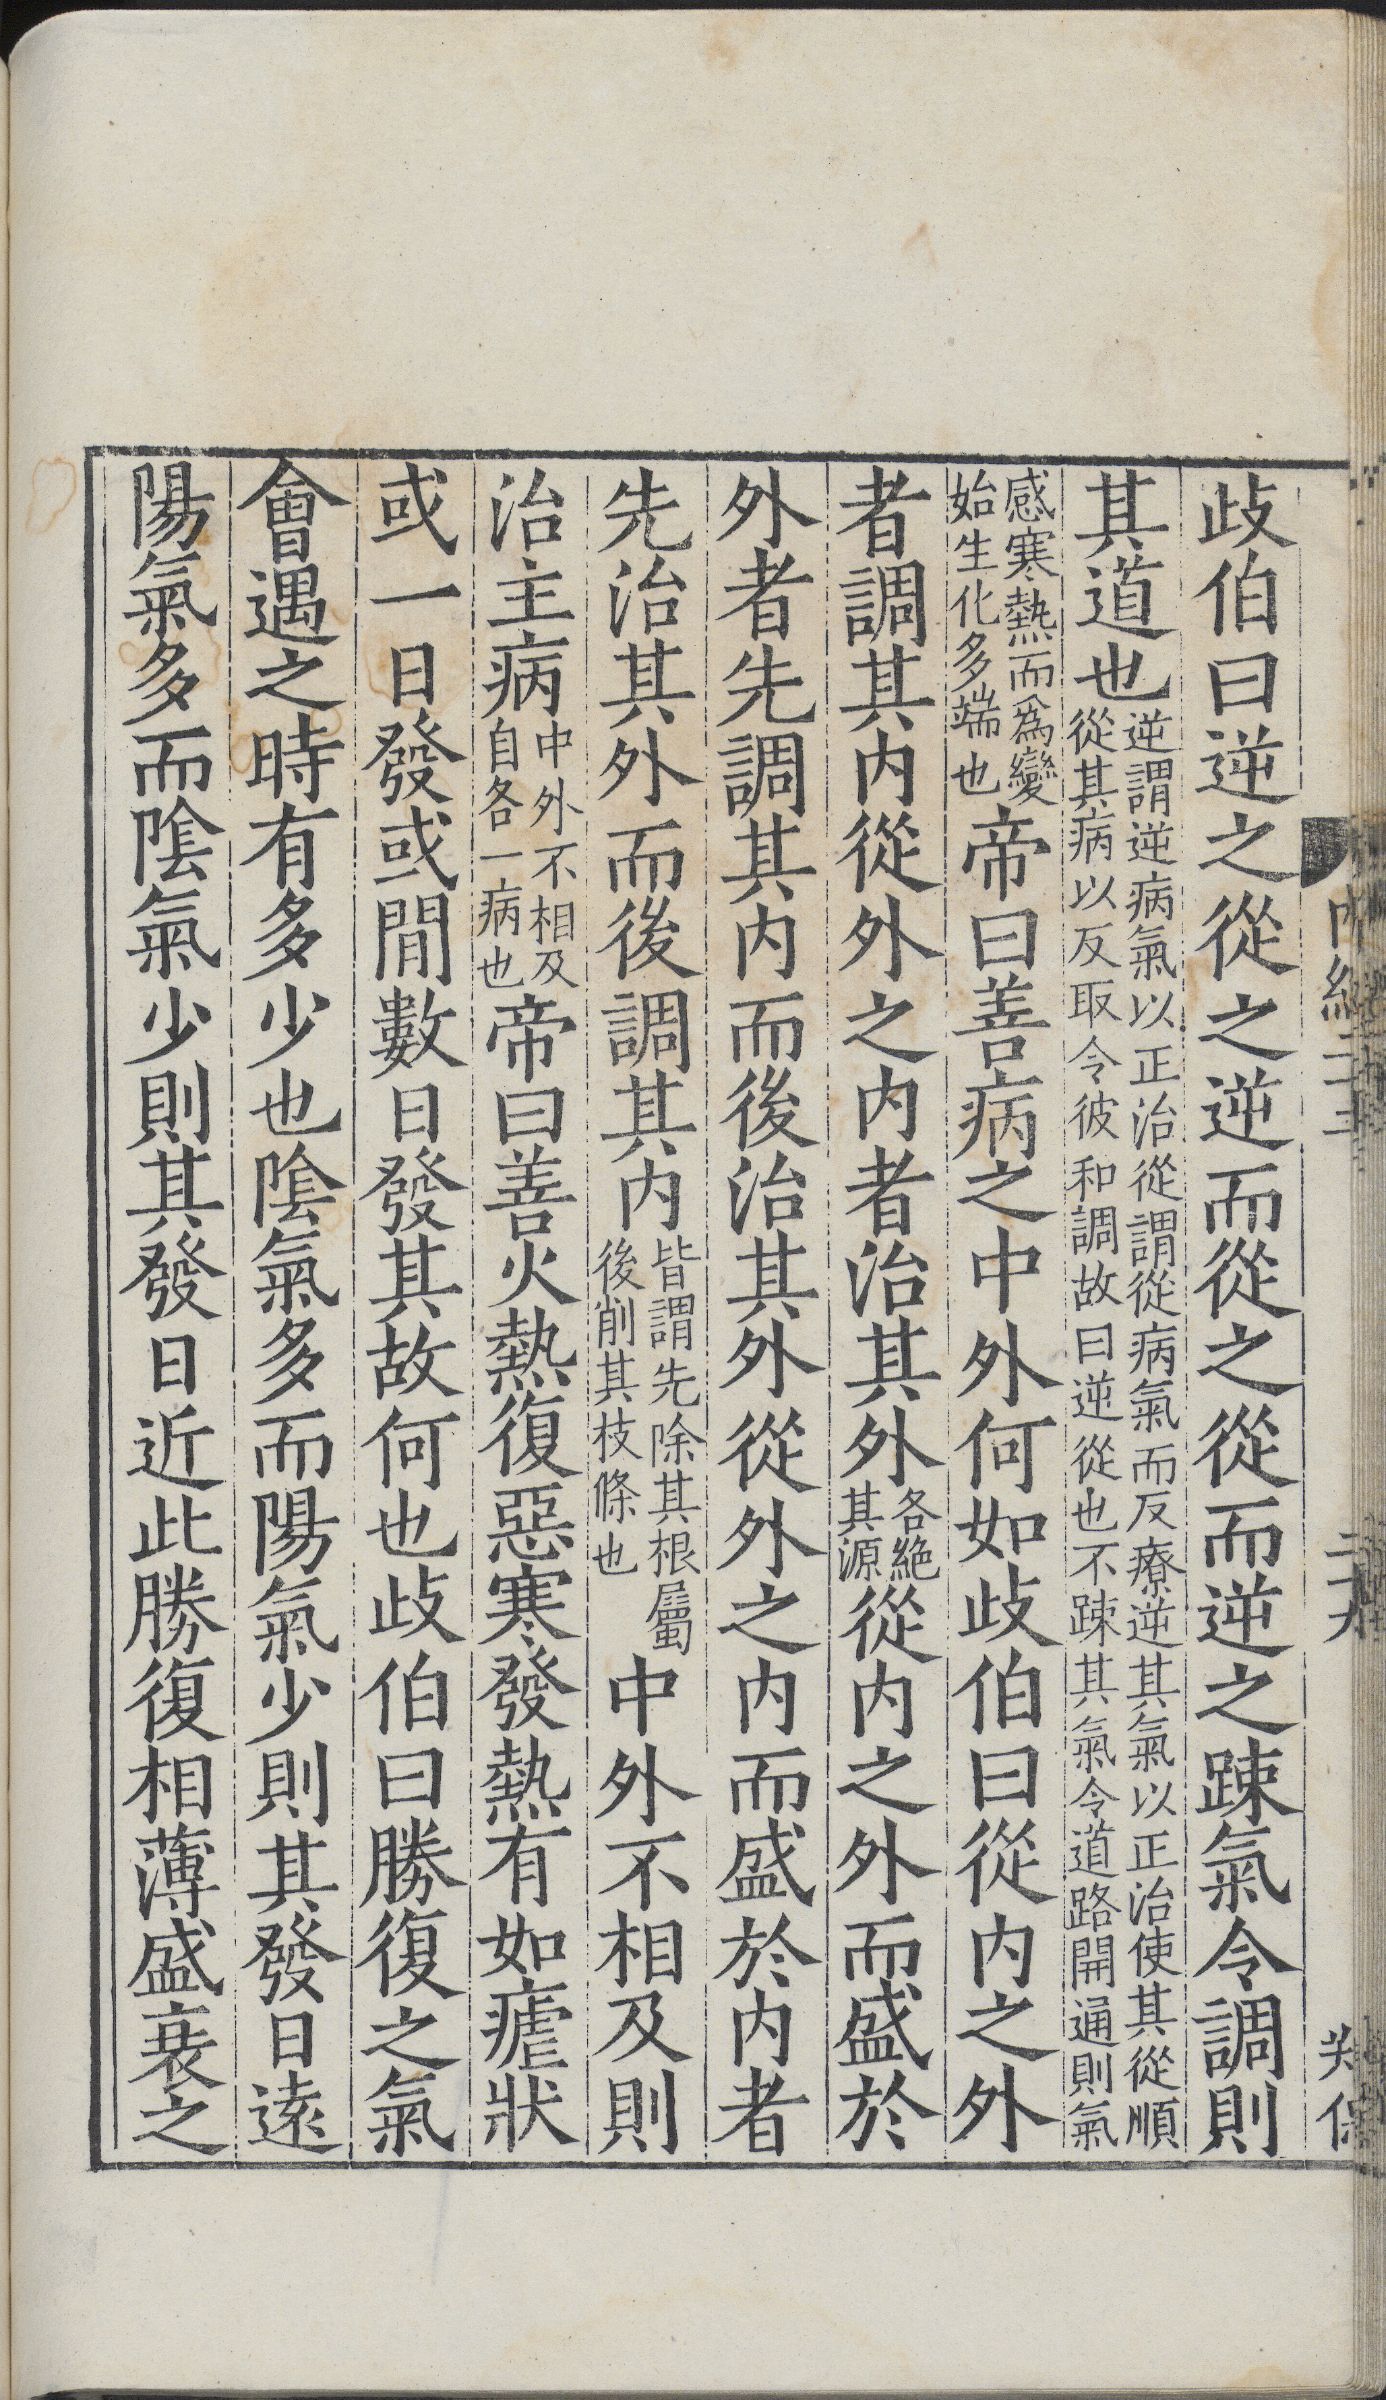 歧伯曰逆之從之逆而從之從而逆之踈氣令調則
其道也逆謂逆病氣以正治從謂從病氣而反療逆其氣以正治使其從順從其病以反取令彼和調故曰逆從也不踈其氣令道路開通則氣
感寒熱而爲變始生化多端也帝曰善病之中外何如歧伯曰從內之外
者調其內從外之內者治其外各絕其源從內之外而盛於
外者先調其內而後治其外從外之內而盛於內者
先治其外而後調其內皆謂先除其根屬後削其枝條也中外不相及則
治主病中外不相及自各一病也帝曰善火熱復惡寒發熱有如瘧狀
或一日發或閒數日發其故何也歧伯曰勝復之氣
會遇之時有多少也陰氣多而陽氣少則其發日遠
陽氣多而陰氣少則其發日近此勝復相薄盛衰之
內經二十三